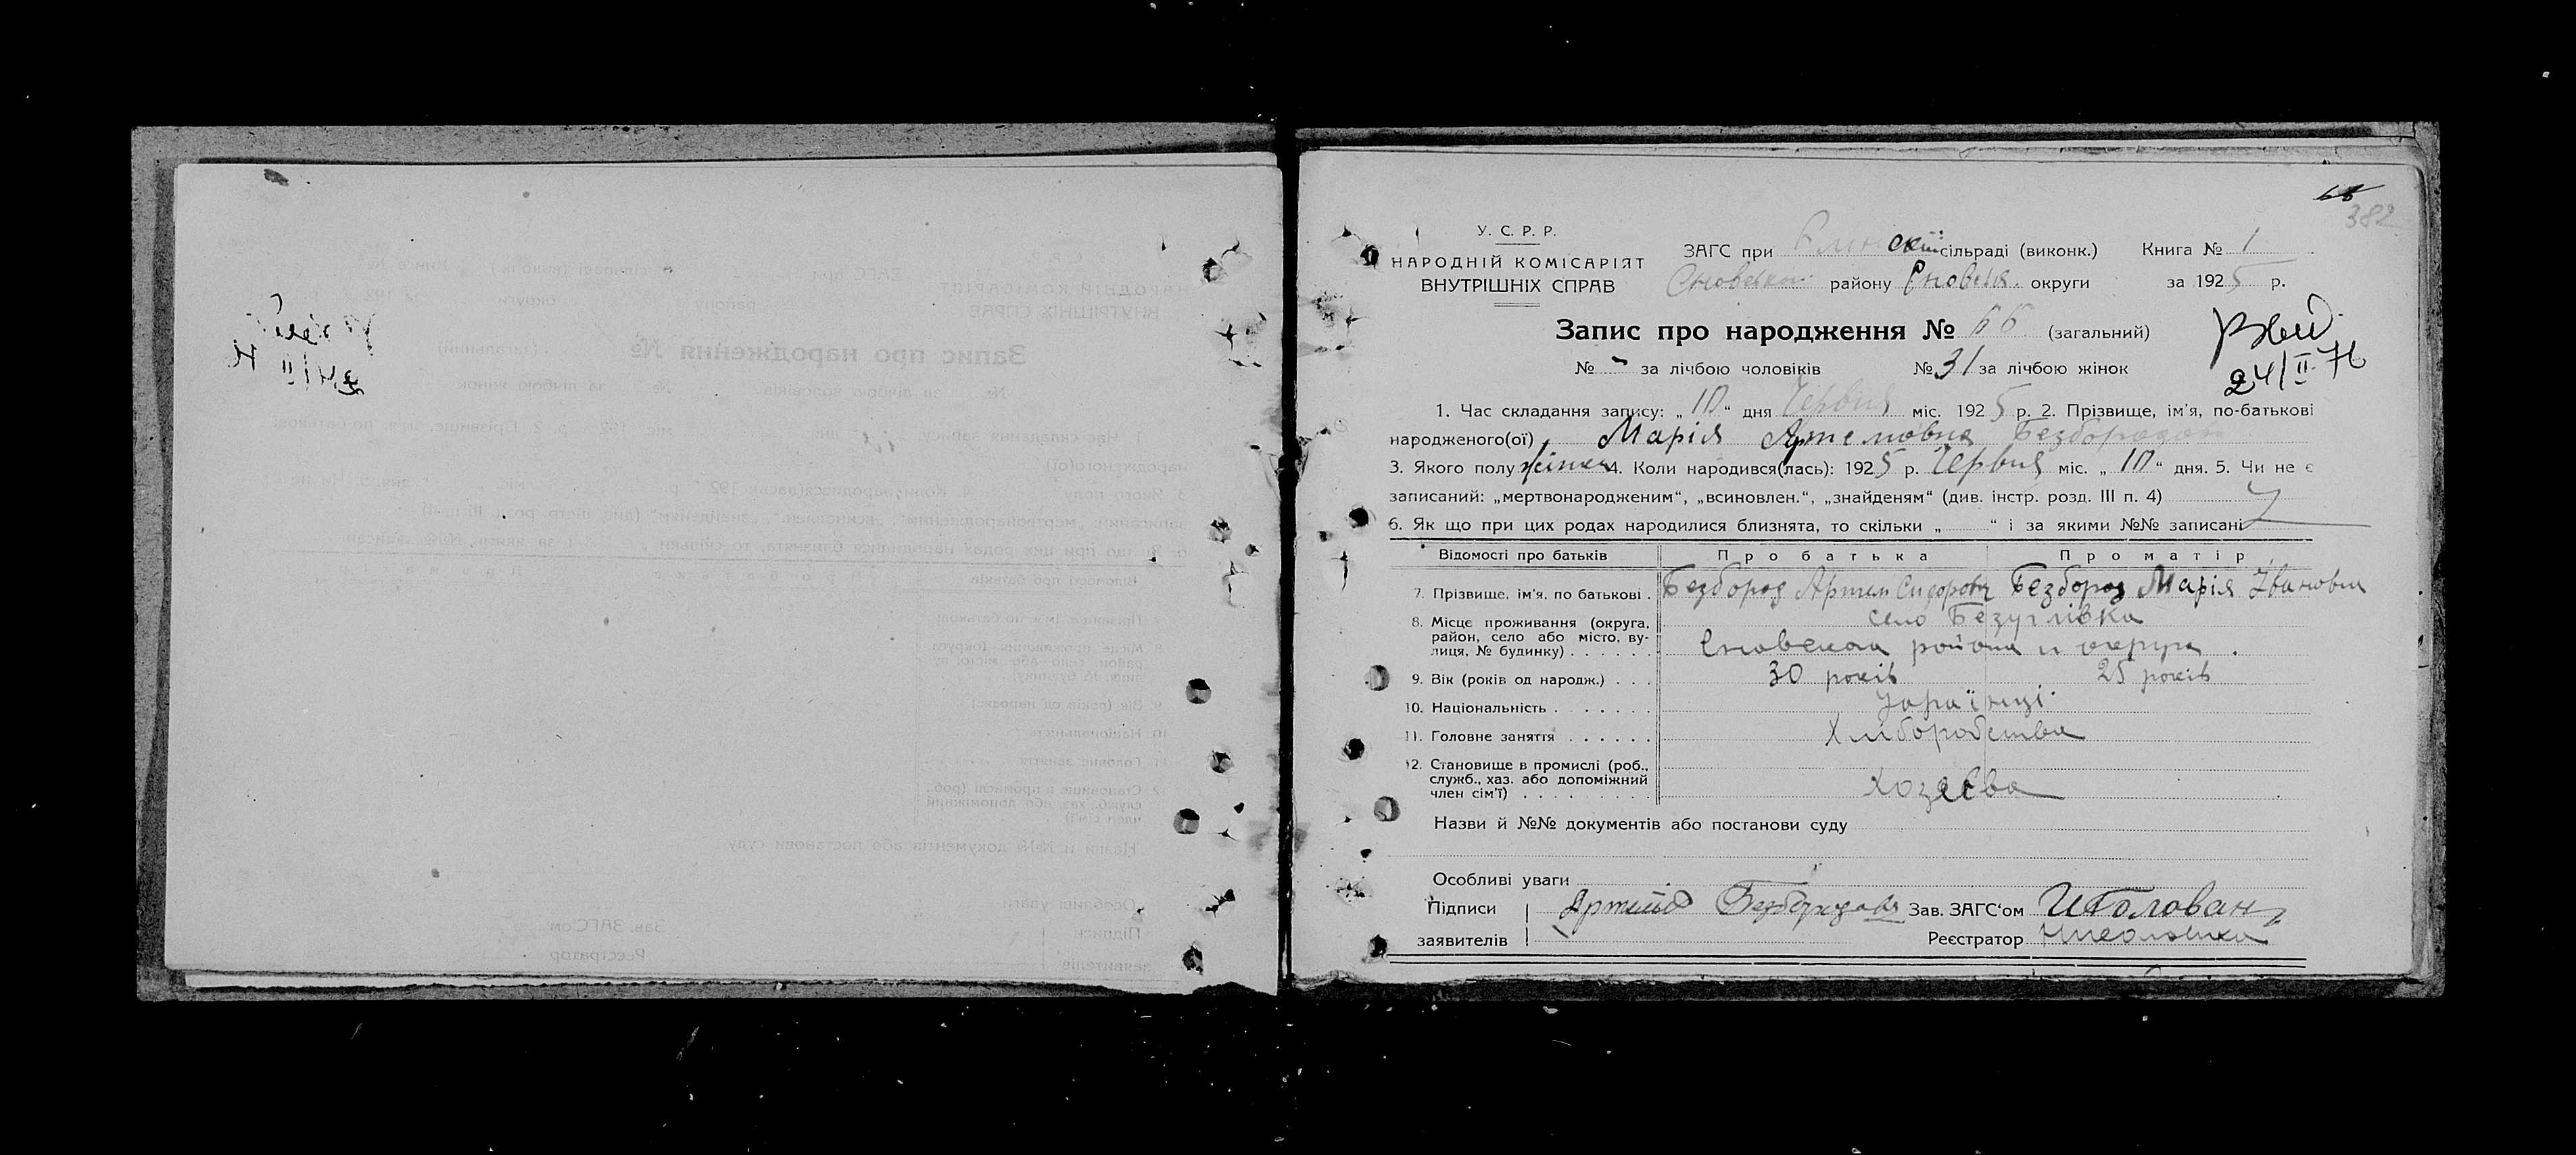 382
У. С. Р. Р.
НАРОДНІЙ КОМІСАРІЯТ
ВНУТРІШНІХ СПРАВ
ЗАГС при сільраді (виконк.) Книга № 1
Сновського району Сновськ. округи за 1925 р.
Запис про народження № 66 (загальний)
№ - за лічбою чоловіків № 31 за лічбою жінок
24/II-76
1. Час складання запису: „10“ дня Червня міс. 1925 р. 2. Прізвище, ім'я, по-батькові
народженого(ої) Марія Артемовна Безбородова
3. Якого полу жіноч 4. Коли народився(лась): 1925 р. Червня міс. „10“ дня. 5. Чи не є
записаний: „мертвонародженим“, „всиновлен.“, „знайденям“ (див. інстр. розд. III п. 4)
6. Як що при цих родах народилися близнята, то скільки „ “ і за якими №№ записані
Відомості про батьків Про батька Про матір
7. Прізвище, ім'я, по батькові . Безбород Артем Сидорович Безбород Марія Івановна
8. Місце проживання (округа, село Безуглівка
район, село або місто, ву-
лиця, № будинку) . . . . . . Сновского района и округи .
9. Вік (років од народж.) . . . 30 років 25 років
10. Національність . . . . . . . Українці
11. Головне заняття . . . . . . Хлиборобства
12. Становище в промислі (роб.,
служб., хаз. або допоміжний
член сім'ї) . . . . . . . . . Хозяєва
Назви й №№ документів або постанови суду
Особливі уваги
Підписи Безбородов Зав. ЗАГС'ом И Голован
заявителів Реєстратор